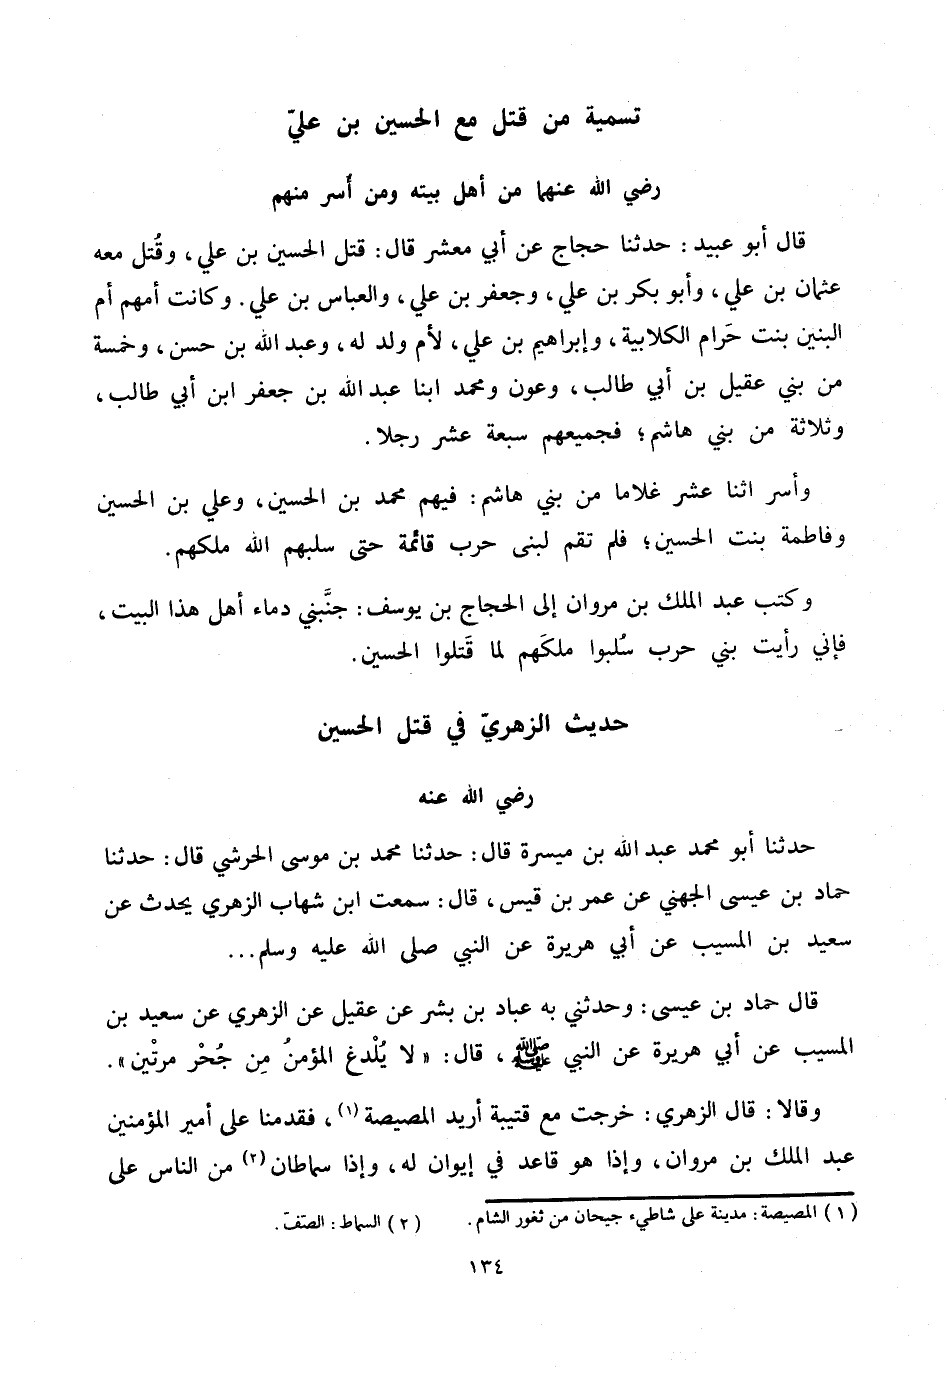 تسمية من قتل مع الحسين بن عليّ
رضي الله عنهما من أهل بيته ومن أُسر منهم
قال أبو عبيد: حدثنا حجاج عن أبي معشر قال: قتل الحسين بن علي، وقُتل معه
عثمان بن علي، وأبو بكر بن علي، وجعفر بن علي، والعباس بن علي. وكانت أمهم أم
البنين بنت حَرام الكلابية، وإبراهيم بن علي، لأم ولد له، وعبد الله بن حسن، وخمسة
من بني عقيل بن أبي طالب، وعون ومحمد ابنا عبد الله بن جعفر ابن أبي طالب،
وثلاثة من بني هاشم؛ فجميعهم سبعة عشر رجلا.
وأسر اثنا عشر غلاما من بني هاشم: فيهم محمد بن الحسين، وعلي بن الحسين
وفاطمة بنت الحسين؛ فلم تقم لبنى حرب قائمة حتى سلبهم الله ملكهم.
وكتب عبد الملك بن مروان إلى الحجاج بن يوسف: جنَّبني دماء أهل هذا البيت،
فإني رأيت بني حرب سُلبوا ملكَهم لما قَتلوا الحسين.
حديث الزهريّ في قتل الحسين
رضي الله عنه
حدثنا أبو محمد عبد الله بن ميسرة قال: حدثنا محمد بن موسى الحرشي قال: حدثنا
حماد بن عيسى الجهني عن عمر بن قيس، قال: سمعت ابن شهاب الزهري يحدث عن
سعيد بن المسيب عن أبي هريرة عن النبي صلى الله عليه وسلم...
قال حماد بن عيسى: وحدثني به عباد بن بشر عن عقيل عن الزهري عن سعيد بن
المسيب عن أبي هريرة عن النبي ﷺ، قال: «لا يُلْدغ المؤمنُ مِن جُحْر مرتْين».
وقالا: قال الزهري: خرجت مع قتيبة أريد المصيصة (١)، فقدمنا على أمير المؤمنين
عبد الملك بن مروان، وإذا هو قاعد في إيوان له، وإذا سماطان (٢) من الناس على
(١) المصيصة: مدينة على شاطيء جيحان من ثغور الشام. (٢) السماط: الصتفّ.
١٣٤